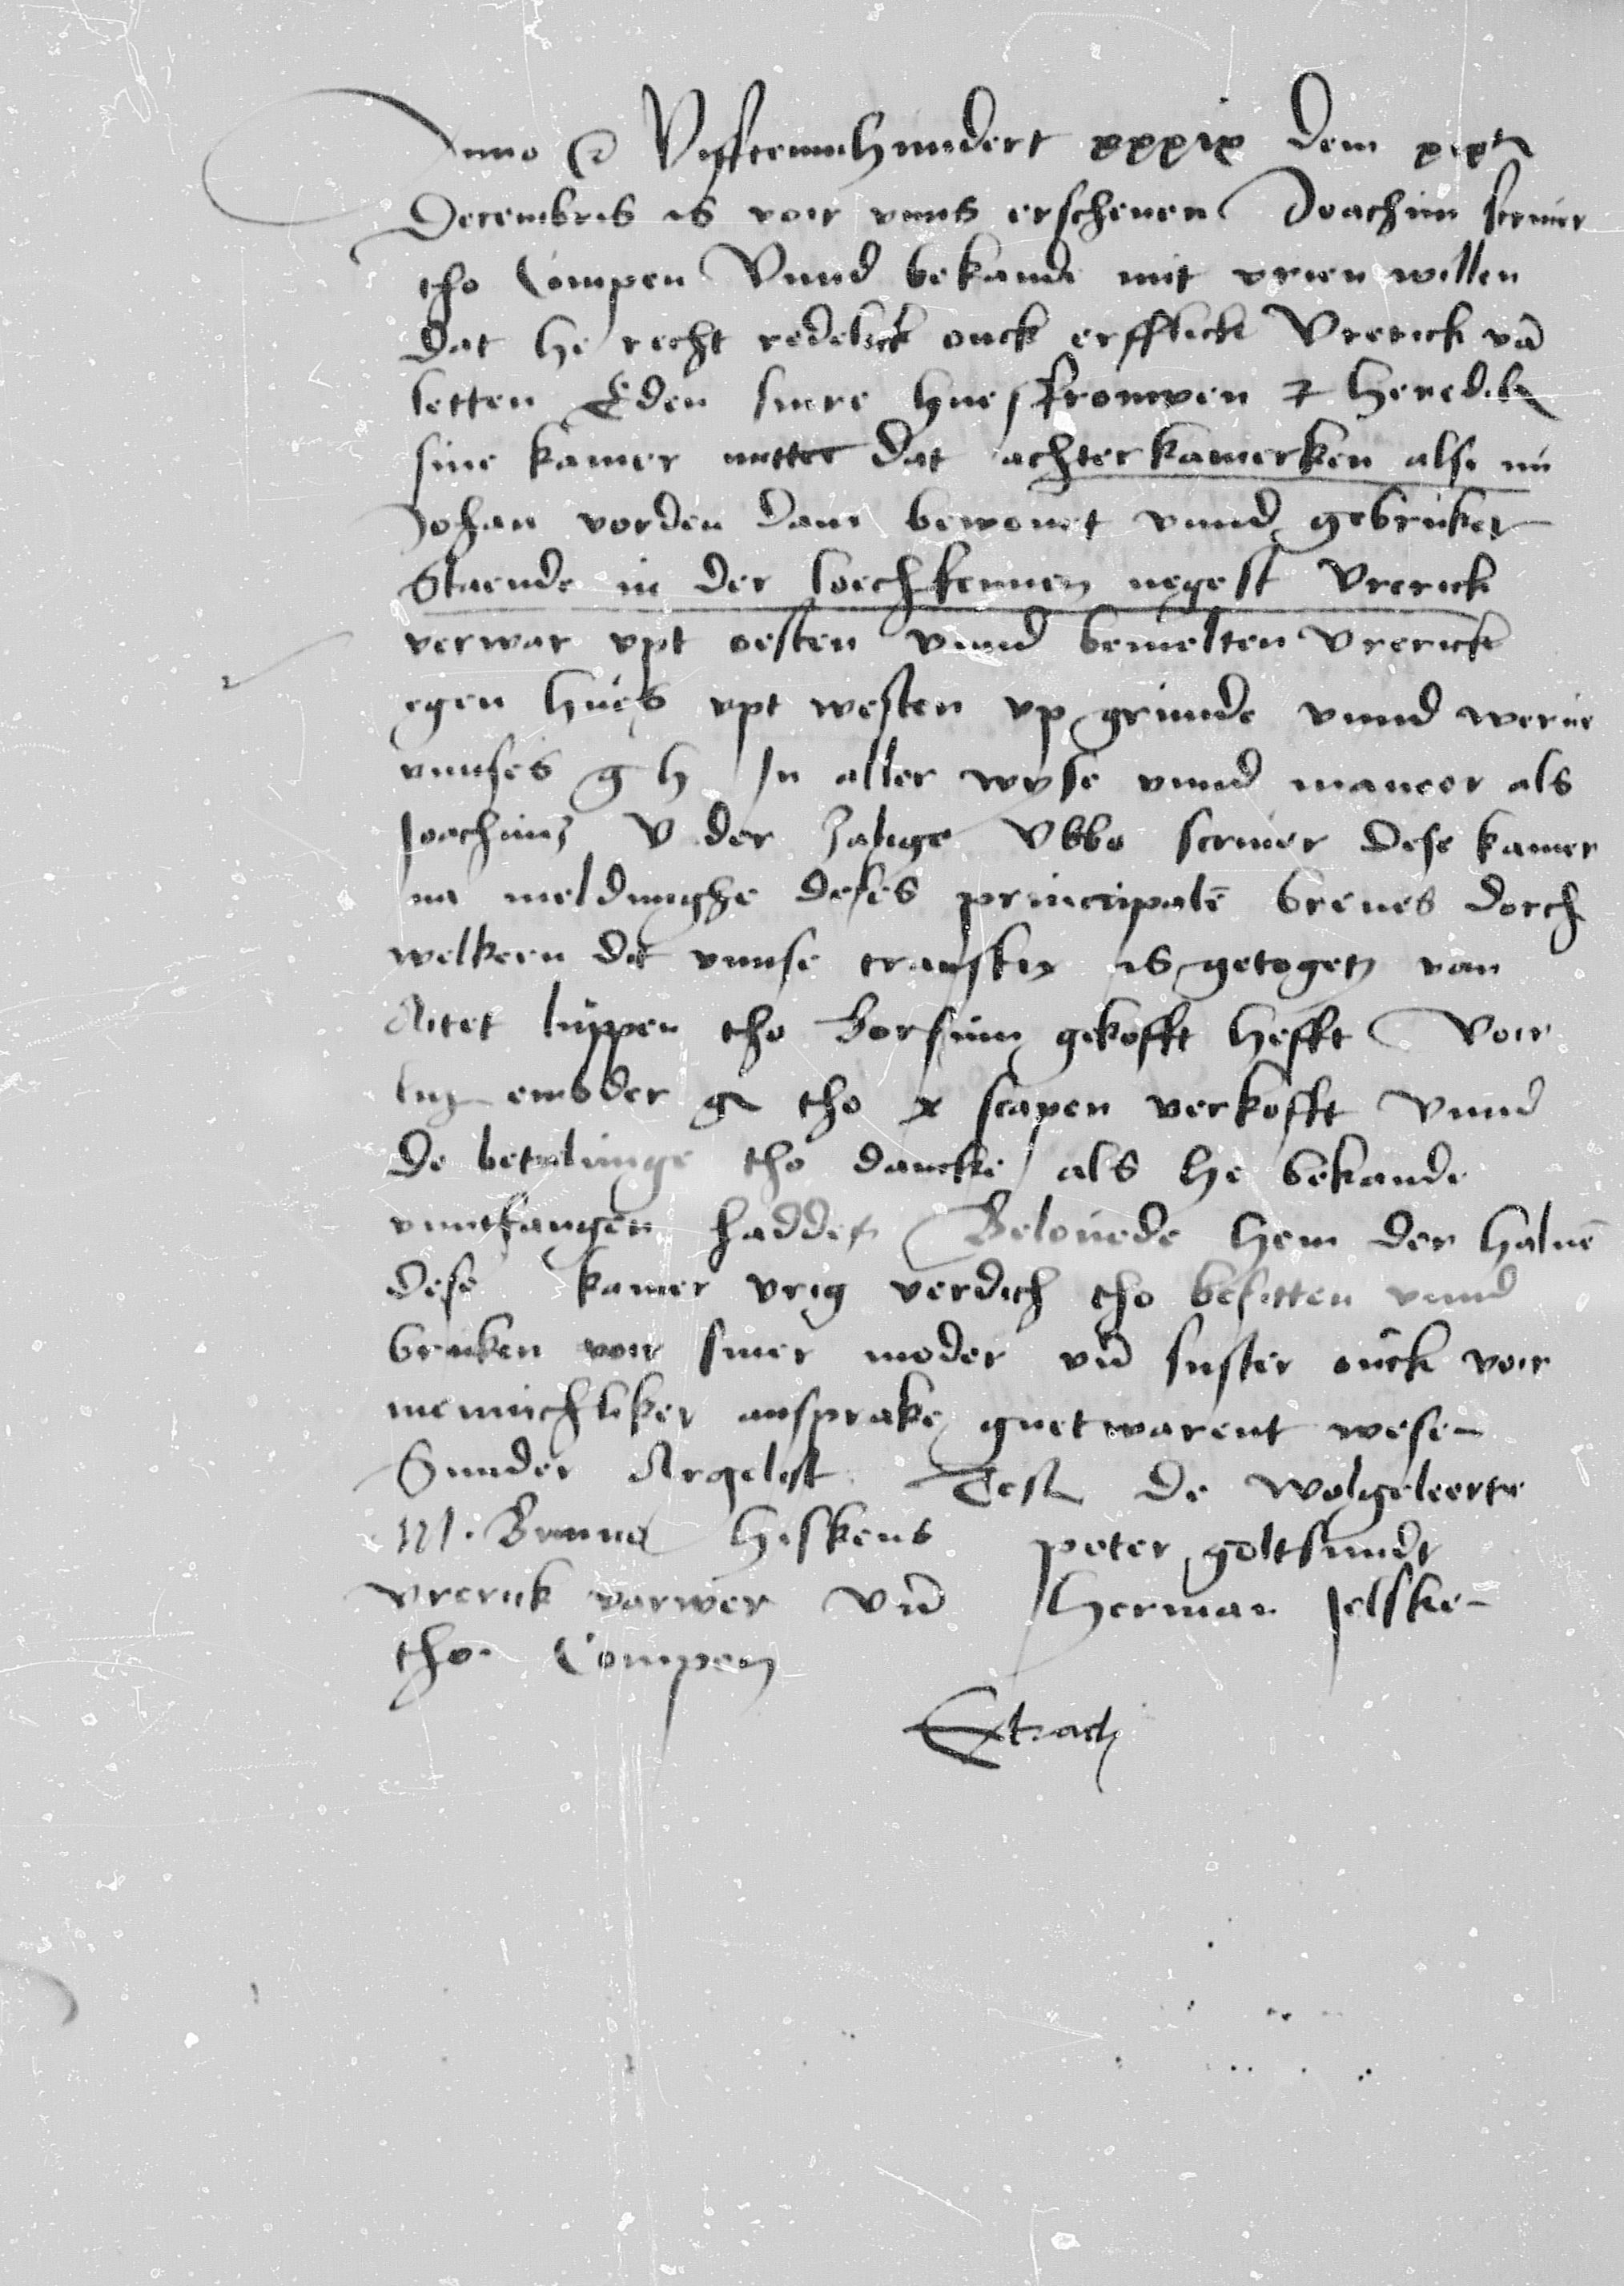 Anno &c Vyffteinnhundert xxxix dem xixten
Decembris is voir vnns erschenen Joachim scriuer
tho Compen Vnnd bekande mit vrien willen
dat he recht redelick ouck erfflick Vrerick vā
letten Eden sinre huesfrouwen & heredib
sine kamer mitter dat achterkamerken alse nu
Johan vorden dam bewonet vnnd gebruket
Staende in der loechstennen negest Vrerick
verwar vpt oesten vnnd bemelten Vrerick
egen hues vpt westen vp grunde vnnd werue
vnnses g h In aller wyse vnnd maneer als
Joachims v der zalige Vbbo scriuer dese kamer
na meldinghe deses principalē breues dorch
welkern dit vnnse transfix is getogen van
Aitet luppen tho Borsum gekofft hefft Voir
emsder gl tho x scapen verkofft Vnnd
de betalinge tho dancke als he bekande
vnntfangen hadde Belouede hem der haluē
dese kamer vrig verdich tho besitten vnnd
bruken voir siner moder vn̄ suster ouck voir
mennichliker ansprake guet warent wesen
Sunder Argelist Test de wolgeleerte
M. Brunno Hiskens peter goltsmidt
vrerick varwer vn̄ Herman Jelsken
tho Compen
Extract